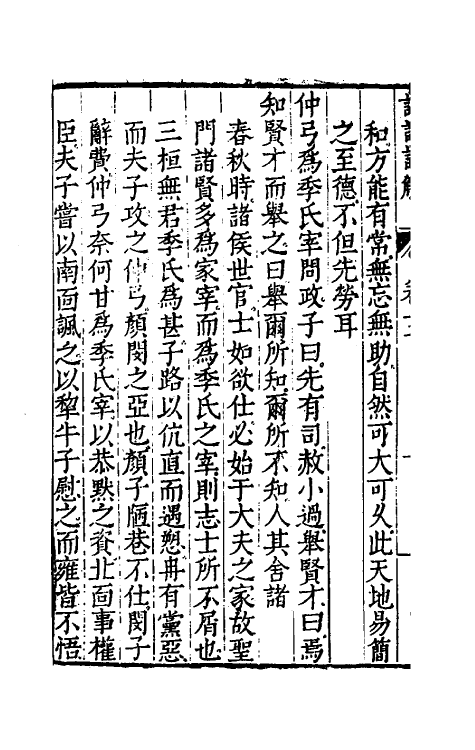 論語詳解　卷十三
和方能有常無忘無助自然可大可久此天地易簡
之至德不但先勞耳
仲弓爲季氏宰問政子曰先有司赦小過舉賢才曰焉
知賢才而舉之曰舉爾所知爾所不知人其舍諸
春秋時諸侯世官士如欲仕必始于大夫之家故聖
門諸賢多爲家宰而爲季氏之宰則志士所不屑也
三桓無君季氏爲甚子路以伉直而遇愬冉有黨惡
而夫子攻之仲弓顏閔之亞也顏子陋巷不仕閔子
辭費仲弓奈何甘爲季氏宰以恭默之資北面事權
臣夫子嘗以南面諷之以犂牛子慰之而雍皆不悟